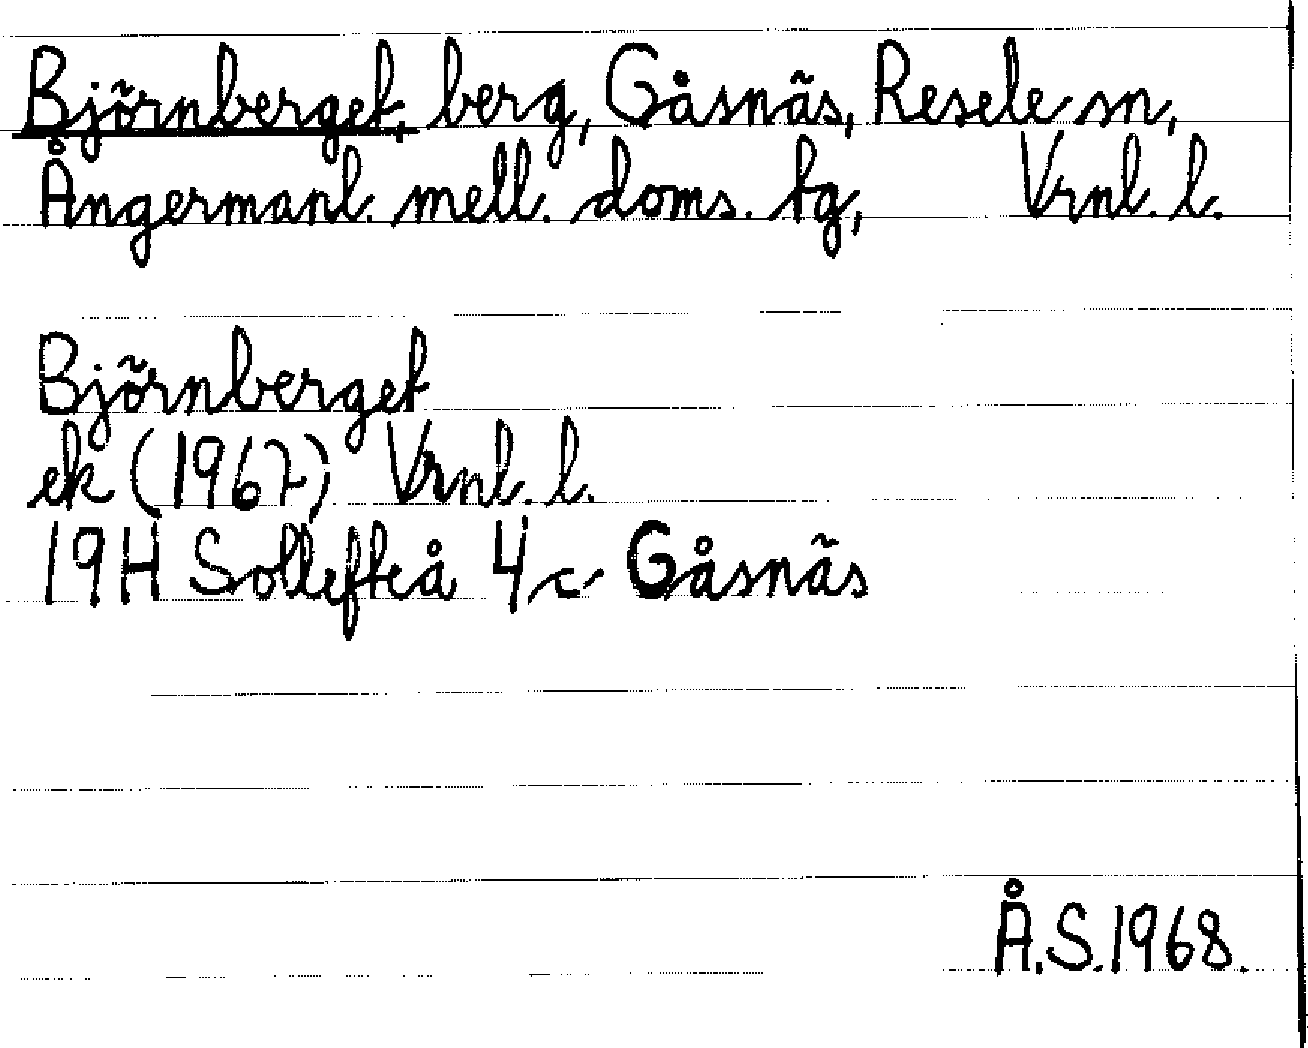 Björnberget, berg, Gåsnäs, Resele sn,
Ångermanl. mell. doms. tg, Vrnl. l.
Björnberget
ek (1967) Vrnl. l.
19H Sollefteå 4 c Gåsnäs
Å.S.1968.